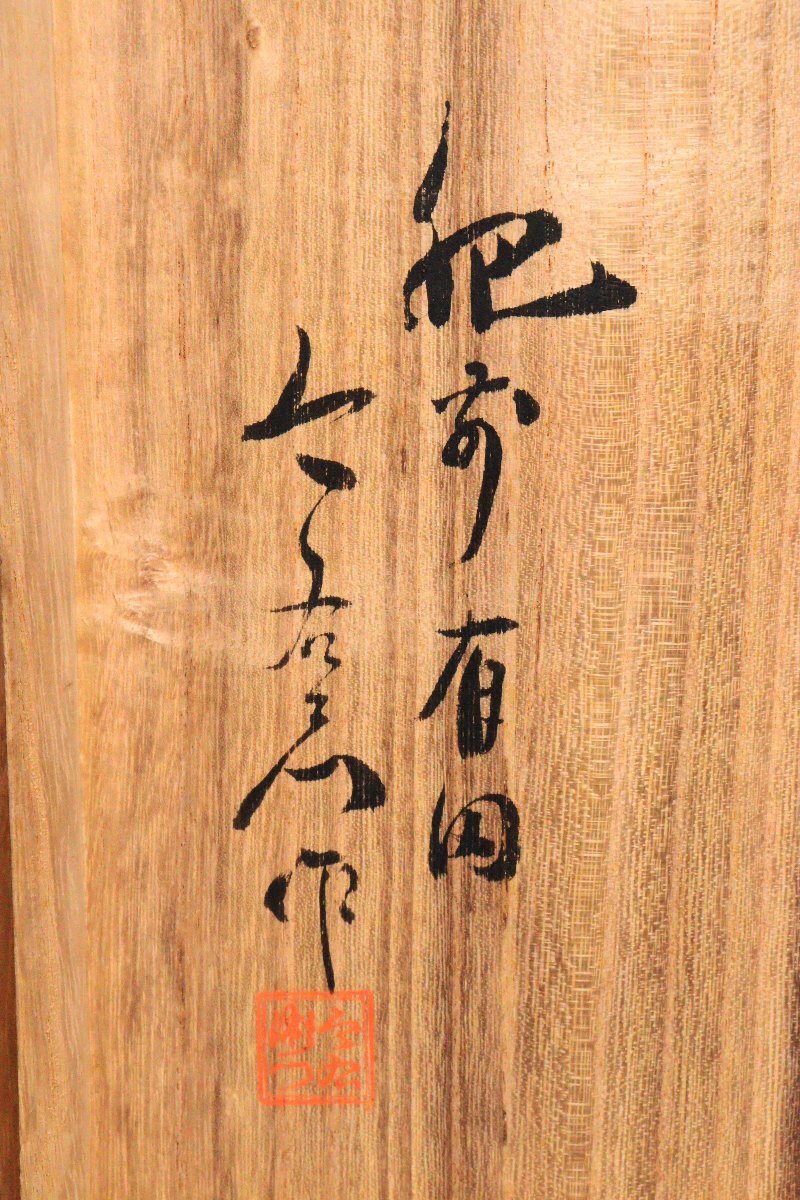 肥前有田
今右衛門作